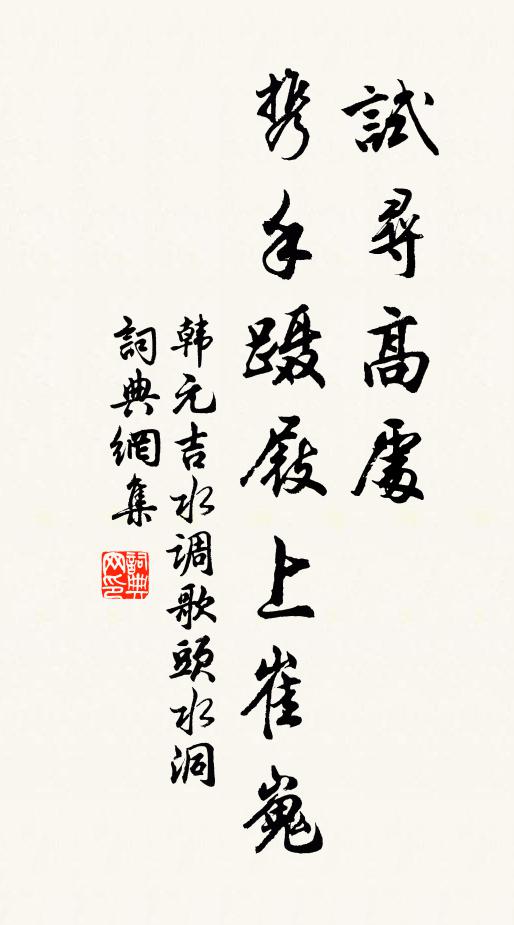 試尋高處
携手躡屐上崔嵬
韩元吉水调歌頭水洞
詞典網集
詞典网印